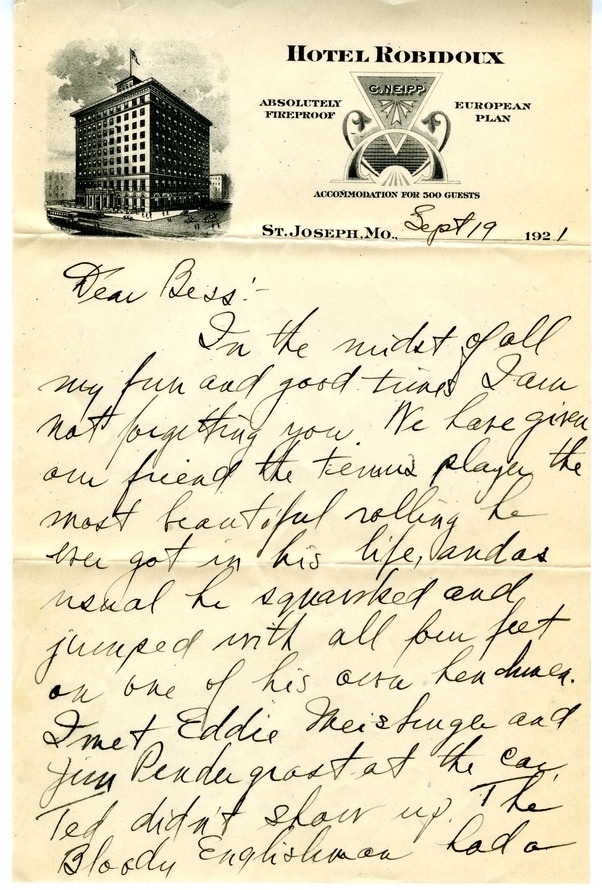 HOTEL ROBIDOUX
C. NEIPP
ABSOLUTELY FIREPROOF
EUROPEAN PLAN
ACCOMMODATION FOR 500 GUESTS
ST. JOSEPH, MO., Sept 19 1921
Dear Bess:-
In the midst of all
my fun and good times I am
not forgetting you. We have given
our friend the tennis player the
most beautiful rolling he
ever got in his life, and as
usual he squawked and
jumped with all four feet
on one of his own henchmen.
I met Eddie Meisburger and
Jim Pendergast at the car,
Ted didn't show up. The
Bloody Englishman had a